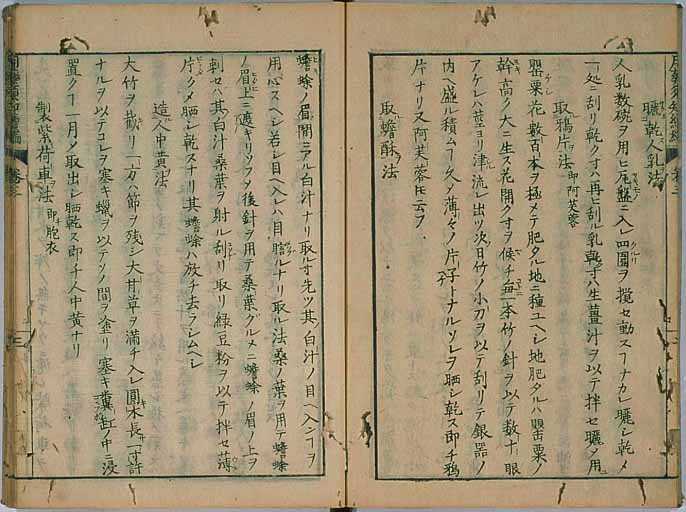 曬乾人乳法
人乳數碗ヲ用ヒ瓦盤ニ入レ四圍ヲ攪セ動スコナカレ曬シ乾メ
一処ニ刮リ乾クオハ再ヒ刮ル乳乾オハ生薑汁ヲ以テ拌セ曬メ用
取鴉片法 即阿芙蓉
罌粟花數百本ヲ極メテ肥タル地ニ種ユヘシ地肥タルハ罌粟ノ
幹高ク大ニ生ス花開クオヲ候チ毎一本竹ノ針ヲ以テ数十眼
アケレハ莖ヨリ津流レ出ツ次日竹ノ小刀ヲ以テ刮リテ銀器ノ
内ヘ盛ル積ムコ久メ薄キノ片子トナルソレヲ晒シ乾ス即チ鴉
片ナリ又阿芙蓉氏云フ
取蟾酥法
蟾蜍ノ眉間ニアル白汁ナリ取ルオ先ツ其白汁ノ目ヘ入コヲ
用心スヘシ若シ目ヘ入レハ目瞎ルナリ取ル法桑ノ葉ヲ用テ蟾蜍
ノ眉上ニ遮キリフタ後針ヲ用テ桑葉グルメニ蟾蜍ノ眉ノ上ヲ
刺セハ其白汁桑葉ヲ射ル刮リ取リ緑豆粉ヲ以テ拌セ薄
片クメ晒シ乾スナリ其蟾蜍ハ放チ去ラシムヘシ
造人中黄法
大竹ヲ截リ一方ハ節ヲ残シ大甘草ヲ満チ入レ圓木長一寸許
ナルヲ以テコレヲ塞キ蠟ヲ以テソノ間ヲ塗リ塞キ糞缸ノ中ニ浸
置クコ一月メ取出シ晒乾ス即チ人中黄ナリ
製紫荷車法 即胞衣